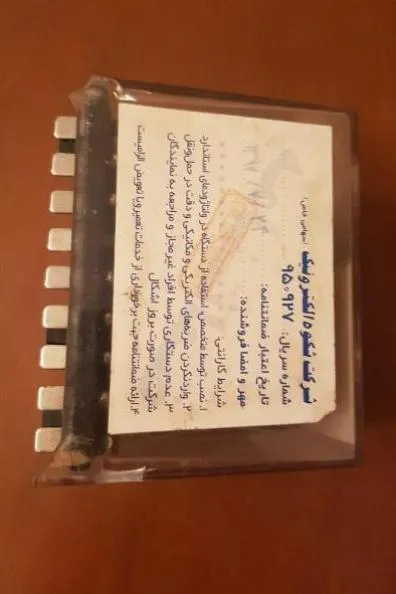 شرکت شکوه الکترونیک (سهامی خاص)
شماره سریال: ۹۵۰۹۲۷
تاریخ اعتبار ضمانتنامه:
مهر و امضا فروشنده:
شرایط گارانتی:
۱. نصب توسط متخصص، استفاده از دستگاه در ولتاژهای استاندارد
۲. وارد نکردن ضربه‌های الکتریکی و مکانیکی و دقت در حمل و نقل
۳. عدم دستکاری توسط افراد غیر مجاز و مراجعه به نمایندگان
شرکت در صورت بروز اشکال
۴. ارائه ضمانتنامه جهت برخورداری از خدمات تعمیر و یا تعویض الزامیست